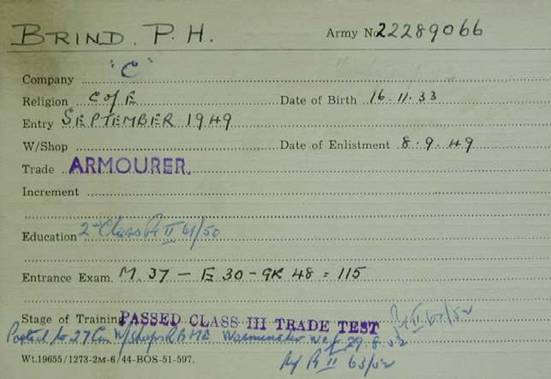 BRIND. P. H. Army No. 22289066
Company "C"
Religion C of E Date of Birth 16.11.33
Entry SEPTEMBER 1949
W/Shop Date of Enlistment 8.9.49
Trade ARMOURER.
Increment
Education 2nd Class Pt II 61/50
Entrance Exam. M. 37 – E 30 – GK 48 = 115
Stage of Training PASSED CLASS III TRADE TEST Pt II 63/52
Posted to 27 Cm W/Shops REME Warminster wef 29.8.52
Pt II 63/52
Wt.19655/1273-2M-6/44-BOS-51-597.